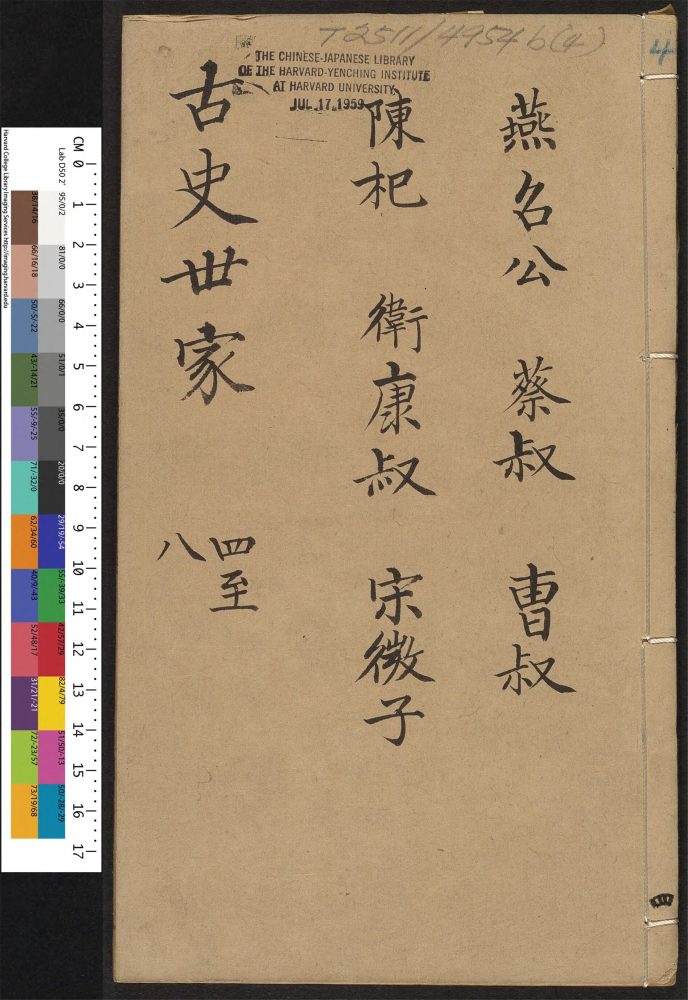 T2511/4954b(4)
4
THE CHINESE-JAPANESE LIBRARY
OF THE HARVARD-YENCHING INSTITUTE
AT HARVARD UNIVERSITY
JUL 17 1959
燕召公 蔡叔 曹叔
陳杞 衛康叔 宋微子
古史世家 四至
八
四
CM 0 1 2 3 4 5 6 7 8 9 10 11 12 13 14 15 16 17
Lab D50 2° 95/0/2 81/0/0 66/0/0 51/0/1 35/0/0 20/0/0 29/19/-54 55/-39/33 42/57/29 82/4/79 51/50/-13 50/-28/-29
38/14/16 66/16/18 50/-5/-22 43/-14/21 55/-9/-25 71/-32/0 62/34/60 40/9/-43 52/48/17 31/21/-21 72/-23/57 73/19/68
Harvard College Library Imaging Services http://imaging.harvard.edu